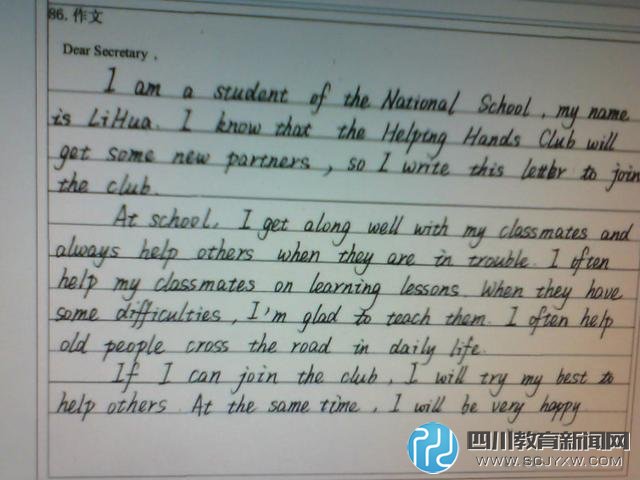 86. 作文
Dear Secretary,
I am a student of the National School, my name
is LiHua. I know that the Helping Hands Club will
get some new partners, so I write this letter to join
the club.
At school, I get along well with my classmates and
always help others when they are in trouble. I often
help my classmates on learning lessons. When they have
some difficulties, I'm glad to teach them. I often help
old people cross the road in daily life.
If I can join the club, I will try my best to
help others. At the same time, I will be very happy
四川教育新闻网
WWW.SCJYXW.COM